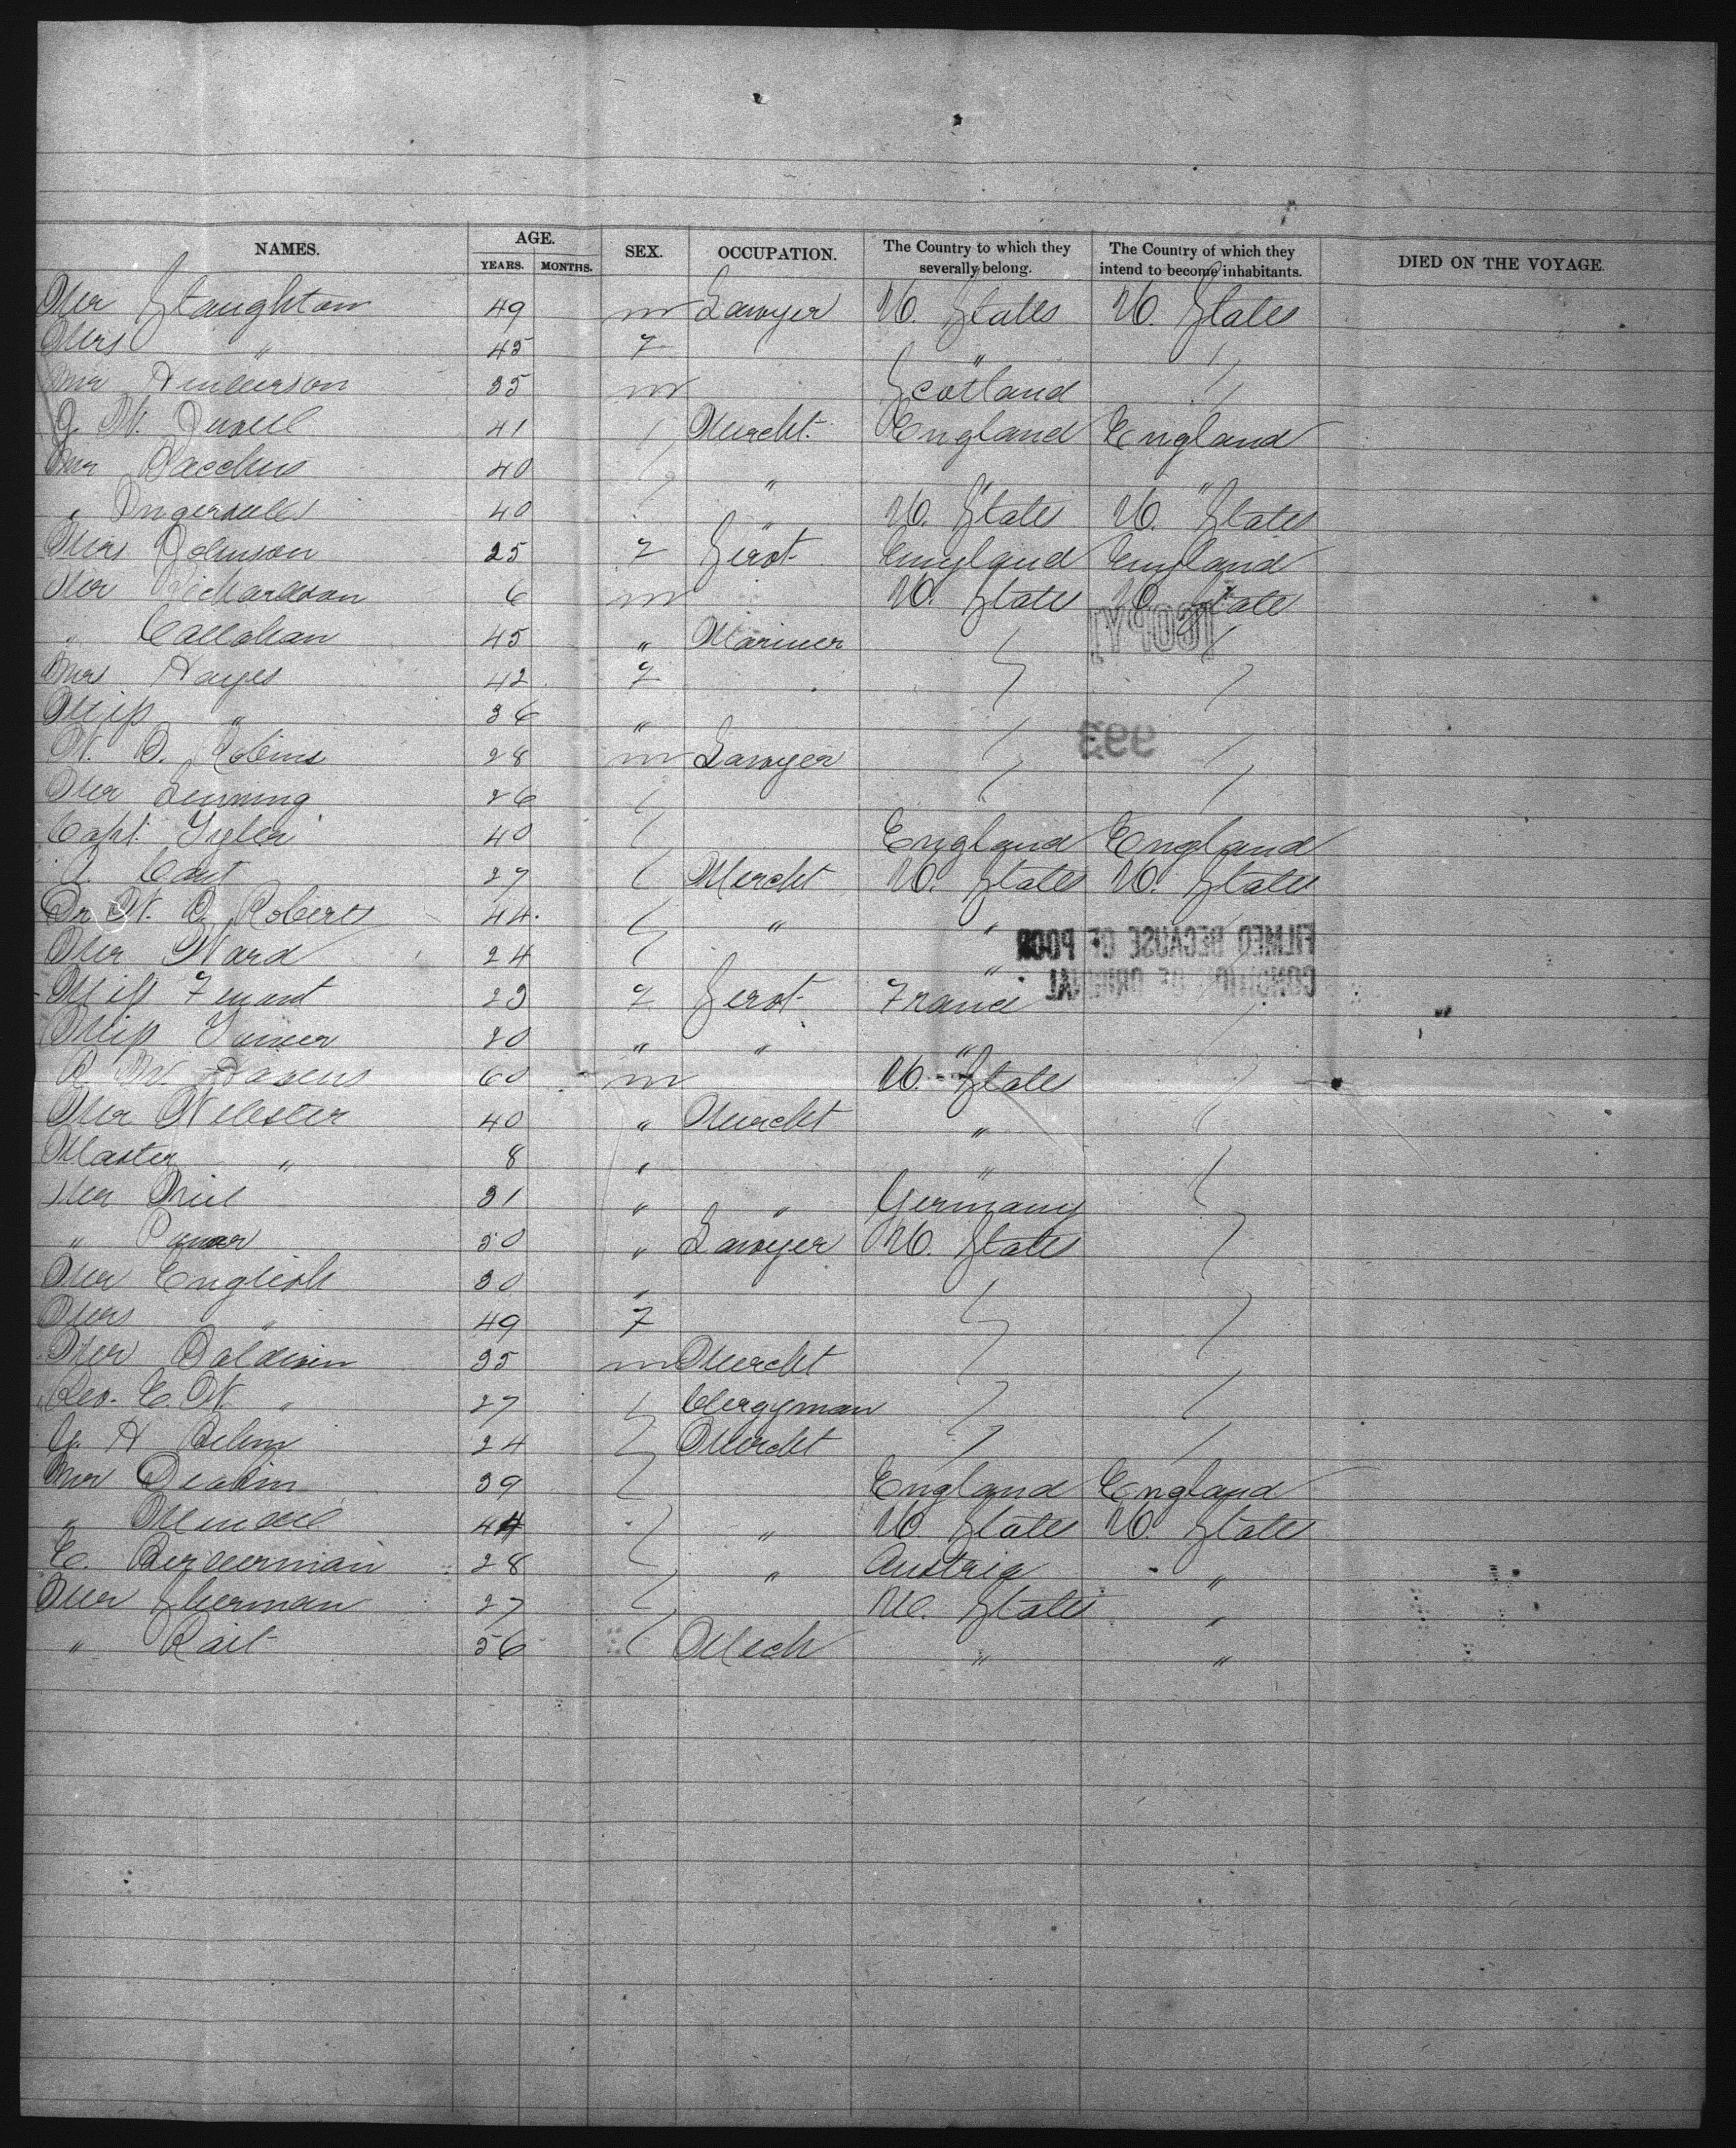 NAMES. AGE. YEARS. MONTHS. SEX. OCCUPATION. The Country to which they severally belong. The Country of which they intend to become inhabitants. DIED ON THE VOYAGE.
Mr Staughton 49 m Lawyer U. States U. States
Mrs " 45 F " "
Mr Anderson 35 m Scotland "
J. W. Jewell 41 " Mercht. England England
Mr Bacchus 40 " " " "
" Ingersoll 40 U. States U. States
Mrs Johnson 25 F Servt. England England
Mr Richardson 6 m U. States U. States
" Callahan 45 " Mariner " "
COPY
Mrs Hayes 42 F " "
Miss " 36 " " "
W. B. Robins 28 m Lawyer " "
993
Mr Lenning 26 " " "
Capt. Tyler 40 " England England
27 " Mercht U. States U. States
Dr W. Roberts 44 " " "
FILMED BECAUSE OF POOR
CONDITION OF ORIGINAL
Mr Ward 24 " "
Miss 23 F Servt. France
Miss 20 " " "
60 m U. States
Mr Webster 40 " Mercht "
Master " 8 " "
Mr 31 " " Germany
" 50 " Lawyer U. States
Mr English 30 "
Mrs " 49 F
Mr Baldwin 35 m Mercht
Rev. E. W. " 27 " Clergyman
G. H 24 " Mercht
Mr Deakin 39 " England England
" 44 " " U. States U. States
E. 28 " " Austria "
Mr Sherman 27 " U. States "
" Rait 56 " Mech " "